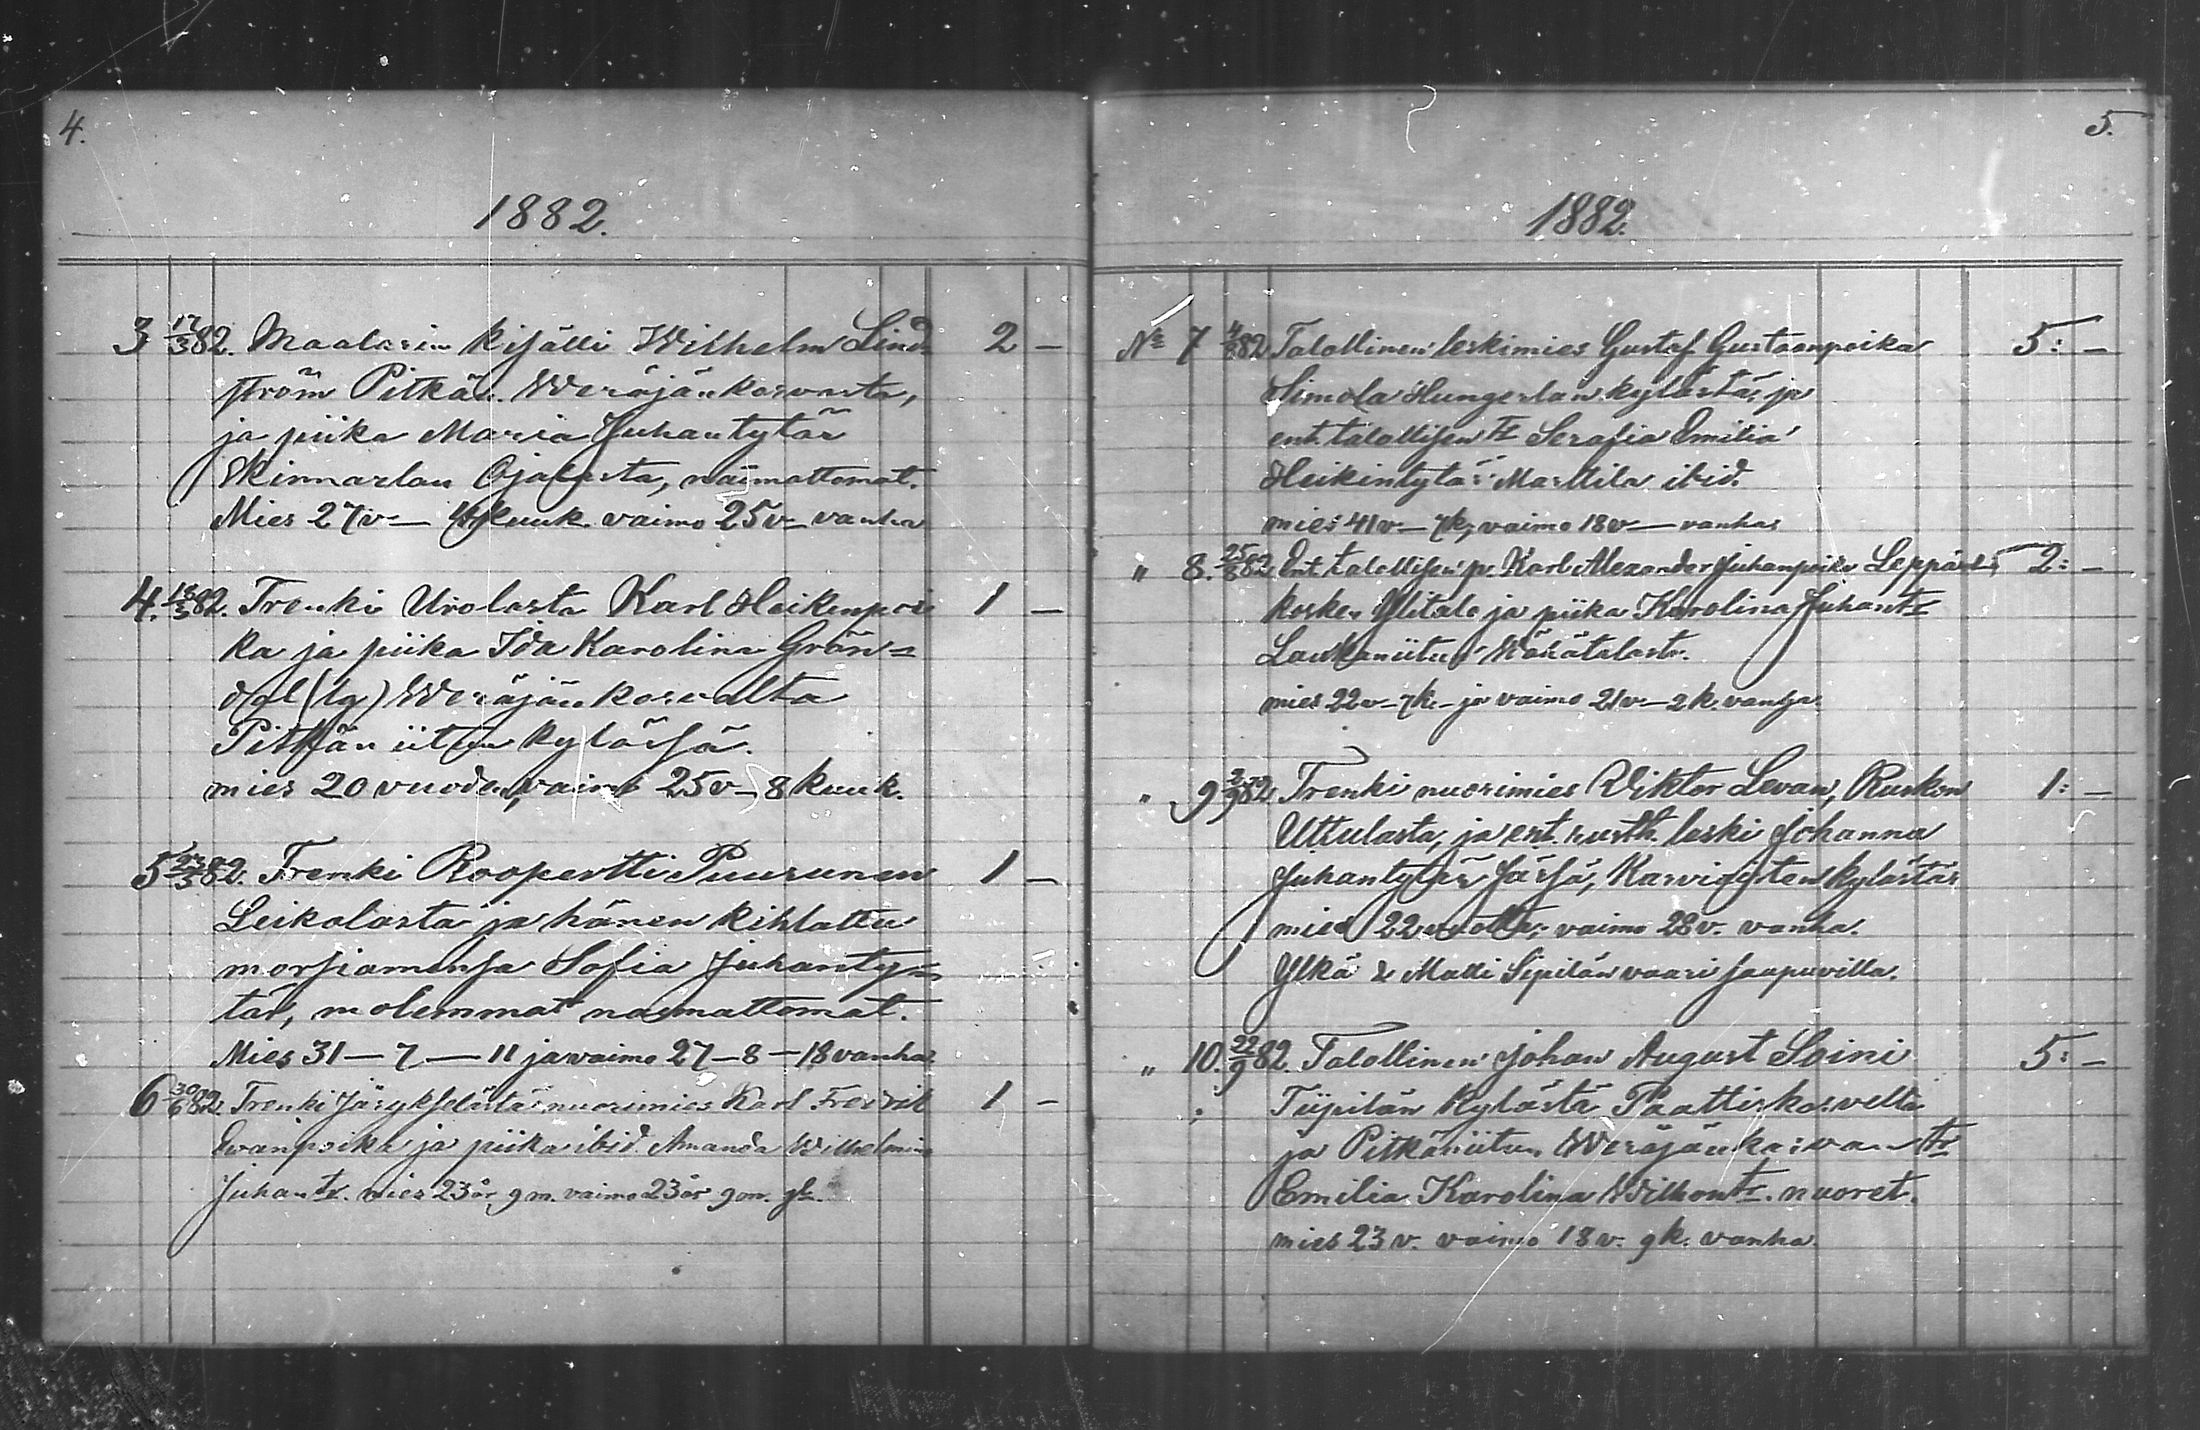 4.
1882.
3 17/3 82. Maalarin kisälli Wilhelm Lind= 2 —
ström Pitkän. Weräjänkorvasta,
ja piika Maria Juhantytär
Skinnarlan Ojalasta, naimattomat.
Mies 27 v — kuuk. vaimo 25 v — vanha
4. 18/3 82. Trenki Urolasta Karl Heikinpoi= 1 —
ka ja piika Ida Karolina Grön=
dal (lg) Weräjänkorvalta
Pitkän iitun kylässä.
mies 20 vuoden, vaimo 25 v — 8 kuuk.
5 /3 82. Trenki Roopertti Puurunen 1 —
Leikolasta ja hänen kihlattu
morsiamensa Sofia Juhanty=
tär, molemmat naimattomat.
Mies 31 — 7 — 11 ja vaimo 27 — 8 — 18 vanha
6 30/6 82. Trenki Järykselästä nuorimies Karl Fredrik 1 —
Ewanpoika ja piika ibid. Amanda Wilhelmina
Juhantr. mies 23 år, 9 m. vaimo 23 år 9 m. gl.
5.
1882.
No 7 4/8 82 Talollinen leskimies Gustaf Gustaanpoika 5: —
Simola Hungerlan kylästä ja
ent. talollisen tr Serafia Emilia
Heikintytär Marttila ibid.
mies 41 v — 7 k, vaimo 18 v — vanha
" 8. 25/8 82 Ent. talollisen p. Karl Alexander Juhanpoika Leppäs= 2: —
kosken Ylitalo ja piika Karolina Juhantr
Laukaniitun Määtälasta.
mies 22 v — 7 k — ja vaimo 21 v — 2 k. vanha
" 9 2/9 82 Trenki nuorimies Viktor Levan, Ruskon 1: —
Uttulasta, ja ent. rusth. leski Johanna
Juhantytär Järsä, Karvigisten kylästä
mies 22 vuotta; vaimo 28 v. vanha.
Ylkä & Matti Sipilän vaari saapuvilla.
" 10. 22/9 82. Talollinen Johan August Soini 5: —
Tiipilän kylästä Paattiskorvelta
ja Pitkäniitun Weräjänkorvan tr
Emilia Karolina Wilhontr. nuoret.
mies 23 v. vaimo 18 v. 9 k. vanha.